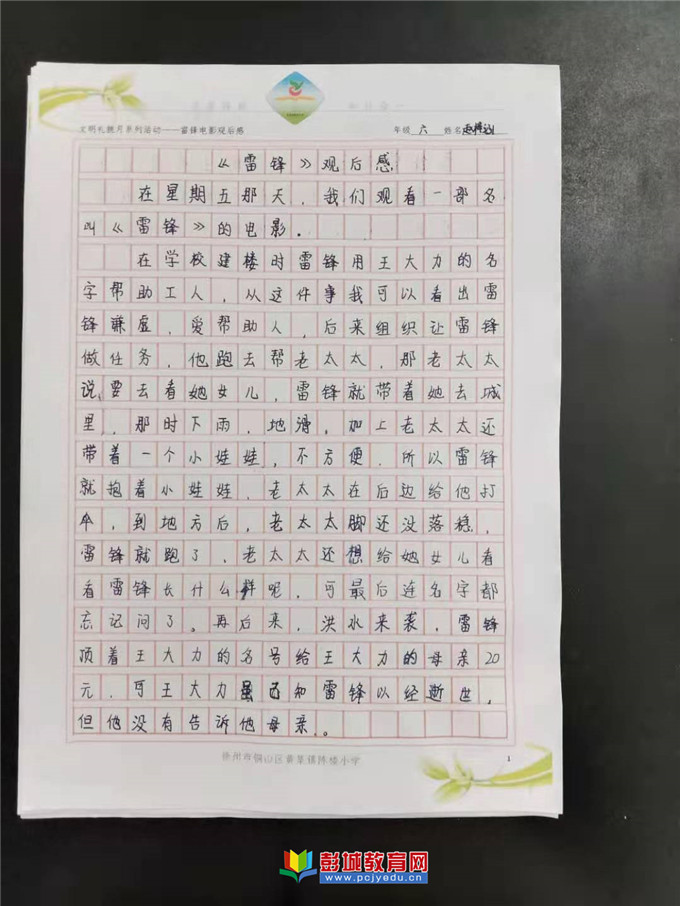 文明礼貌月系列活动——雷锋电影观后感 年级 六 姓名
《雷锋》观后感
在星期五那天，我们观看一部名
叫《雷锋》的电影。
在学校建楼时雷锋用王大力的名
字帮助工人，从这件事我可以看出雷
锋谦虚，爱帮助人，后来组织让雷锋
做任务，他跑去帮老太太，那老太太
说要去看她女儿，雷锋就带着她去城
里，那时下雨，地滑，加上老太太还
带着一个小娃娃，不方便，所以雷锋
就抱着小娃娃，老太太在后边给他打
伞，到地方后，老太太脚还没落稳，
雷锋就跑了，老太太还想给她女儿看
看雷锋长什么样呢，可最后连名字都
忘记问了。再后来，洪水来袭，雷锋
顶着王大力的名号给王大力的母亲20
元，可王大力虽已和雷锋以经逝世，
但他没有告诉他母亲。
徐州市铜山区黄集镇陈楼小学
1
彭城教育网
www.pcjyedu.cn